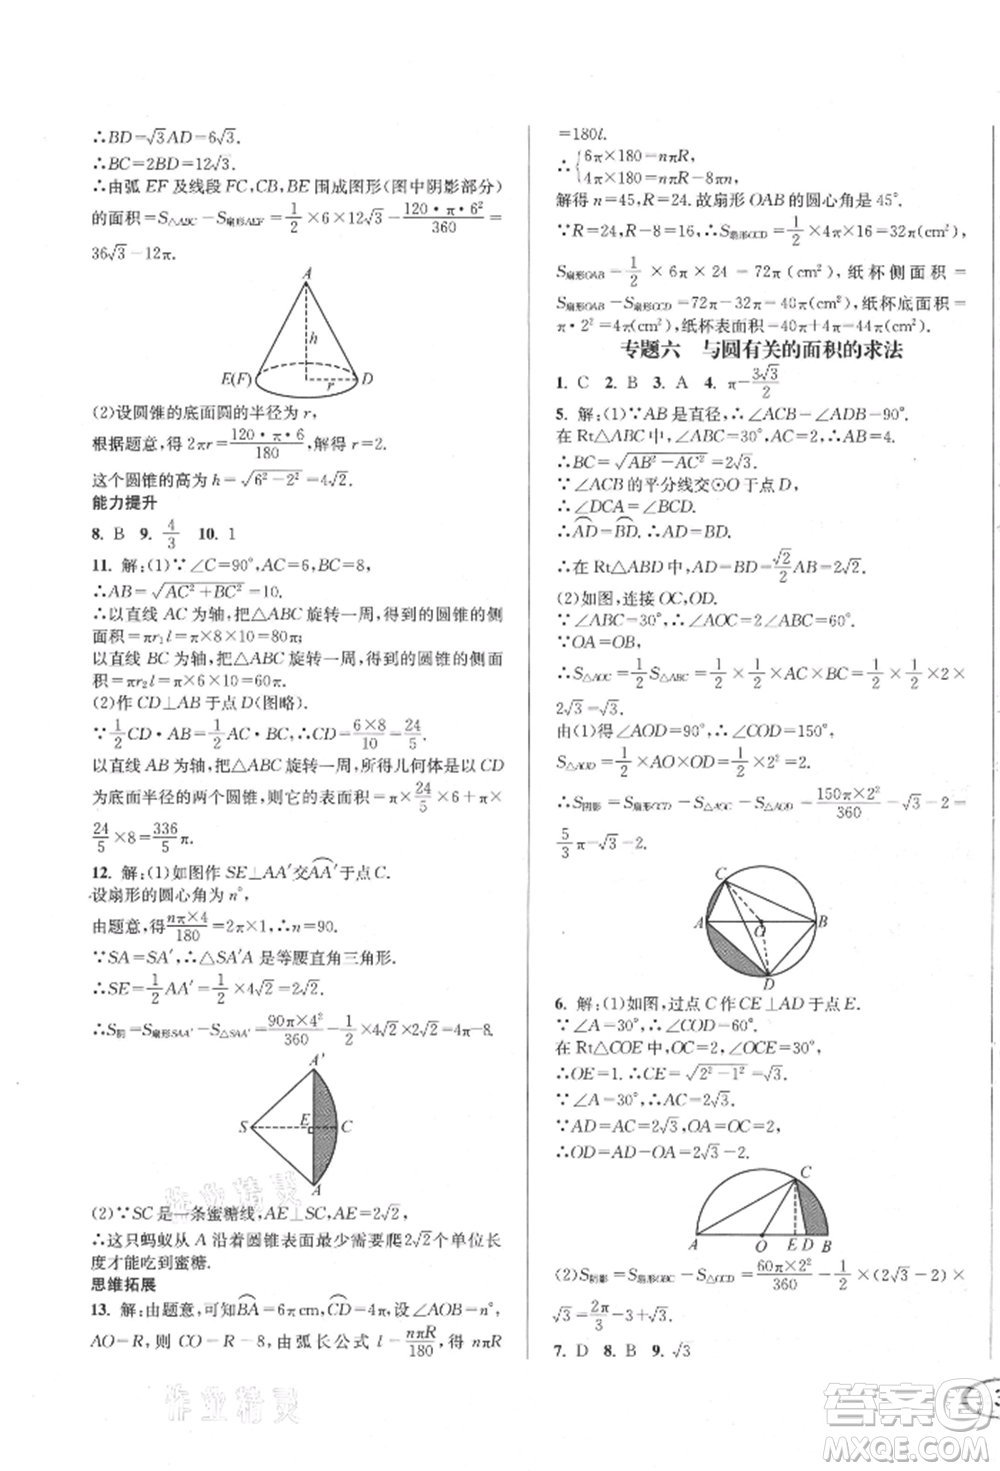 ∴BD=√3AD=6√3.
∴BC=2BD=12√3.
∴由弧EF及线段FC,CB,BE围成图形(图中阴影部分)
的面积=S△ABC-S扇形AEF=1/2×6×12√3-120·π·6²/360=
36√3-12π.
A
h
E(F) r D
(2)设圆锥的底面圆的半径为r,
根据题意,得2πr=120·π·6/180,解得r=2.
这个圆锥的高为h=√(6²-2²)=4√2.
能力提升
8. B 9. 4/3 10. 1
11. 解:(1)∵∠C=90°,AC=6,BC=8,
∴AB=√(AC²+BC²)=10.
∴以直线AC为轴,把△ABC旋转一周,得到的圆锥的侧
面积=πr₁l=π×8×10=80π;
以直线BC为轴,把△ABC旋转一周,得到的圆锥的侧面
积=πr₂l=π×6×10=60π.
(2)作CD⊥AB于点D(图略).
∵1/2CD·AB=1/2AC·BC,∴CD=6×8/10=24/5.
以直线AB为轴,把△ABC旋转一周,所得几何体是以CD
为底面半径的两个圆锥,则它的表面积=π×24/5×6+π×
24/5×8=336/5π.
12. 解:(1)如图作SE⊥AA′交AA′于点C.
设扇形的圆心角为n°,
由题意得nπ×4/180=2π×1,∴n=90.
∵SA=SA′,∴△SA′A是等腰直角三角形.
∴SE=1/2AA′=1/2×4√2=2√2.
∴S阴=S扇形SAA′-S△SAA′=90π×4²/360-1/2×4√2×2√2=4π-8.
A′
S E C
A
(2)∵SC是一条蜜糖线,AE⊥SC,AE=2√2,
∴这只蚂蚁从A沿着圆锥表面最少需要爬2√2个单位长
度才能吃到蜜糖.
思维拓展
13. 解:由题意,可知BA=6πcm,CD=4π,设∠AOB=n°,
AO=R,则CO=R-8,由弧长公式l=nπR/180,得nπR
=180l.
∴{6π×180=nπR,
4π×180=nπR-8πn,
解得n=45,R=24.故扇形OAB的圆心角是45°.
∵R=24,R-8=16,∴S扇形OCD=1/2×4π×16=32π(cm²),
S扇形OAB=1/2×6π×24=72π(cm²),纸杯侧面积=
S扇形OAB-S扇形OCD=72π-32π=40π(cm²),纸杯底面积=
π·2²=4π(cm²),纸杯表面积=40π+4π=44π(cm²).
专题六 与圆有关的面积的求法
1. C 2. B 3. A 4. π-3√3/2
5. 解:(1)∵AB是直径,∴∠ACB=∠ADB=90°.
在Rt△ABC中,∠ABC=30°,AC=2,∴AB=4.
∴BC=√(AB²-AC²)=2√3.
∵∠ACB的平分线交⊙O于点D,
∴∠DCA=∠BCD.
∴AD=BD.∴AD=BD.
∴在Rt△ABD中,AD=BD=√2/2AB=2√2.
(2)如图,连接OC,OD.
∵∠ABC=30°,∴∠AOC=2∠ABC=60°.
∵OA=OB,
∴S△AOC=1/2S△ABC=1/2×1/2×AC×BC=1/2×1/2×2×
2√3=√3.
由(1)得∠AOD=90°,∴∠COD=150°,
S△AOD=1/2×AO×OD=1/2×2×2=2.
∴S阴影=S扇形COD-S△AOC-S△AOD=150π×2²/360-√3-2=
5/3π-√3-2.
C
A O B
D
6. 解:(1)如图,过点C作CE⊥AD于点E.
∵∠A=30°,∴∠COD=60°.
在Rt△COE中,OC=2,∠OCE=30°,
∴OE=1.∴CE=√(2²-1²)=√3.
∵∠A=30°,∴AC=2√3.
∵AD=AC,∴AD=2√3,OA=OC=2.
∴OD=AD-AO=2√3-2.
C
A O E D B
(2)S阴影=S扇形OBC-S△COD=60π×2²/360-1/2×(2√3-2)×
√3=2π/3-3+√3.
7. D 8. B 9. √3
作业精灵
作业精灵
答案圈
MXQE.COM